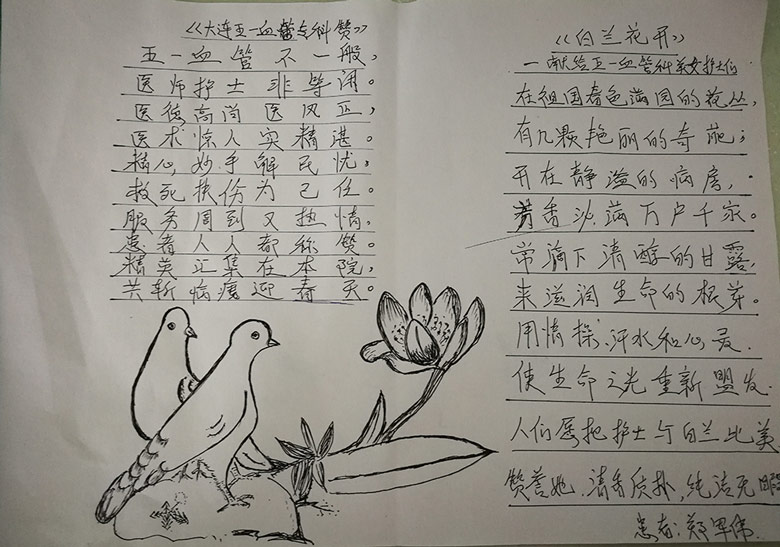 《大连五一血管专科赞》
五一血管不一般，
医师护士非等闲。
医德高尚医风正，
医术惊人实精湛。
精心妙手解民忧，
救死扶伤为己任。
服务周到又热情，
患者人人都称赞。
精英汇集在本院，
共斩病魔迎春天。
《白兰花开》
一献给五一血管科美女护士们
在祖国春色满园的花丛，
有几颗艳丽的奇葩；
开在静谧的病房，
芳香沁满万户千家。
常滴下清醇的甘露，
来滋润生命的根芽。
用情操、汗水和心灵
使生命之光重新盟发
人们总把护士与白兰比美
赞誉她、清香质扑，纯洁无暇
患者：郑